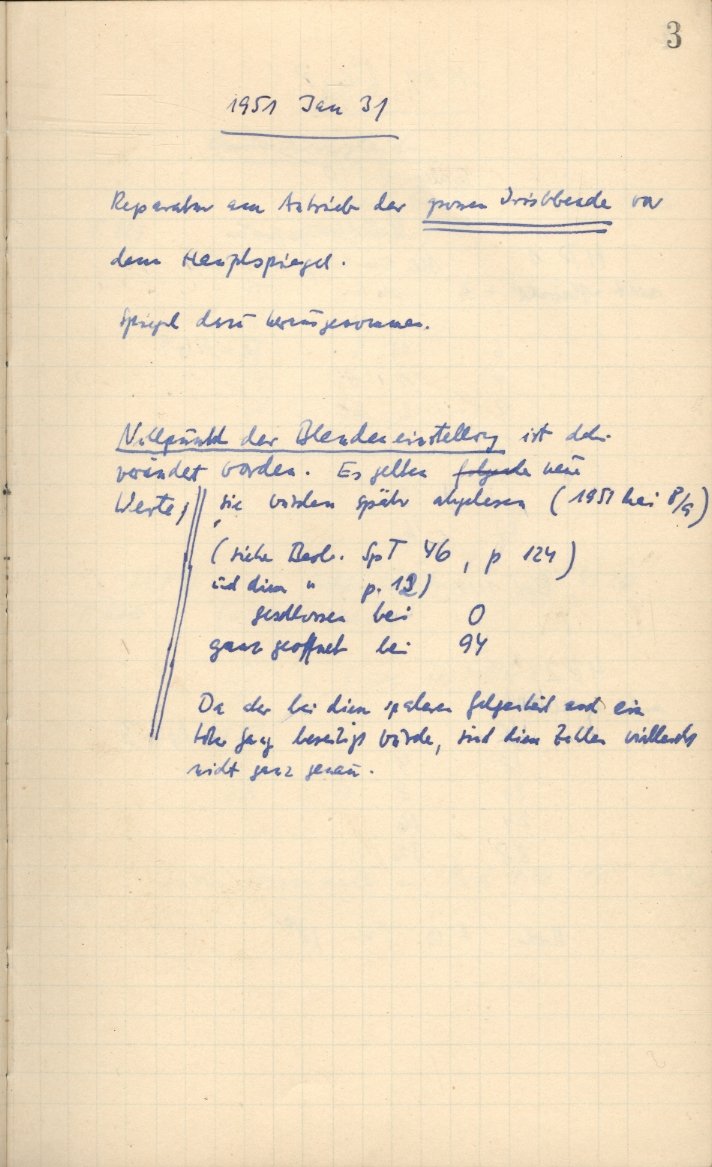 3
1951 Jan 31
Reparatur am Antrieb der grossen Irisblende vor
dem Hauptspiegel.
Spiegel dazu herausgenommen.
Nullpunkt der Blendeneinstellung ist dabei
verändert worden. Es gelten folgende neue
Werte, sie wurden später abgelesen (1951 Mai 8/9)
(siehe Beob. SpT 46, p 124)
und dies " p. 12)
geschlossen bei 0
ganz geöffnet bei 94
Da der bei dieser späteren Gelegenheit auch ein
toter Gang beseitigt wurde, sind diese Zahlen vielleicht
nicht ganz genau.